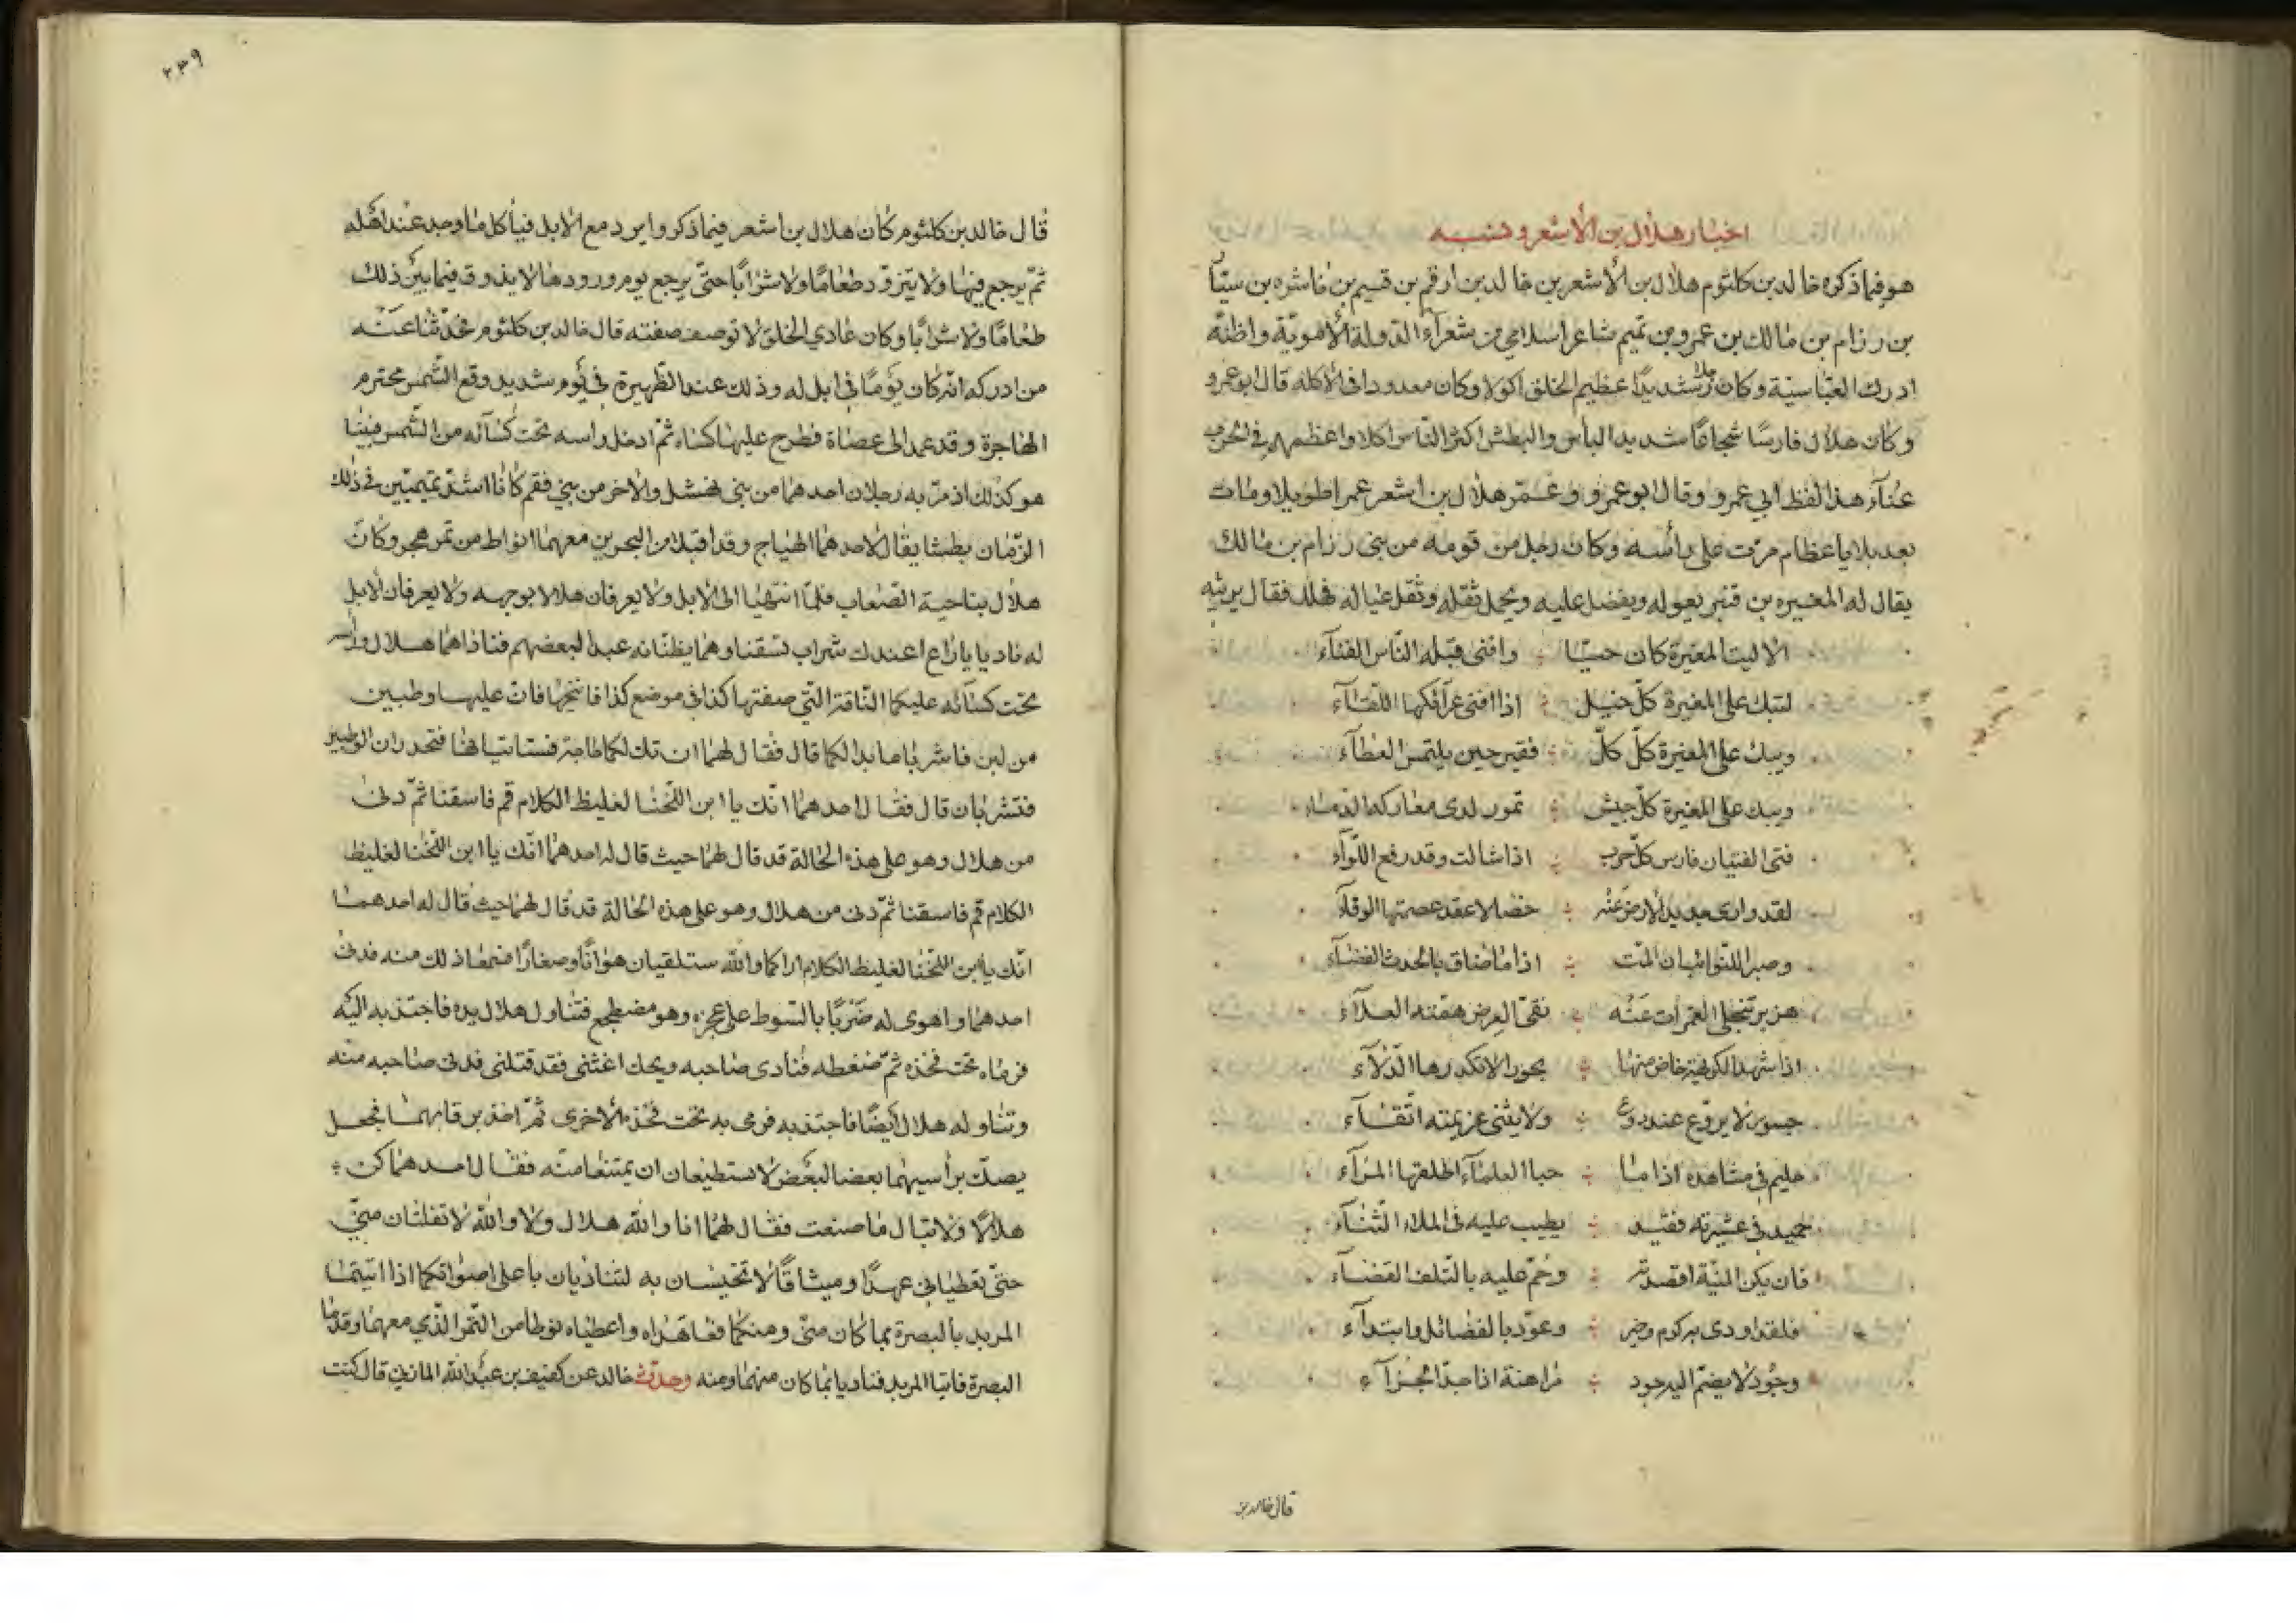 اخبار هلال بن الأشعر ونسبه
هو فيما ذكره خالد بن كلثوم هلال بن الأشعر بن خالد بن ارقم بن قسيم بن ناشره بن سيّا
بن رزام بن مالك بن عمرو بن تميم شاعر اسلامي من شعرآء الدّولة الأمويّة واظنّه
ادرك العبّاسيّة وكان رجلا شديدًا عظيم الخلق اكولا وكان معدودا فى الاكله قال ابو عمرو
وكان هلال فارسًا شجاعًا شديد البأس والبطش اكثر النّاس اكلا واعظمهم فى الحرب
غنآء هذا لفظ ابي عمرو وقال ابو عمرو وعمّر هلال بن اشعر عمرا طويلا ومات
بعد بلايا عظام مرّت على رأسه وكان رجل من قومه من بنى رزام بن مالك
يقال له المغيره بن قنبر يعوله ويفضل عليه ويحمل ثقله وثقل عياله فهلك فقال يرثيه
الا ليت المغيرة كان حيّا ؞ وافنى قبله النّاس الفنآء
لتبك على المغيرة كلّ خيل ؞ اذا افنى عرآئكها اللّقآء
ويبك على المغيرة كلّ كلّ ؞ فقير حين يلتمس العطآء
ويبك على المغيرة كلّ جيش ؞ تمور لدى معاركه الدّماء
فتى الفتيان فارس كلّ حرب ؞ اذا شالت وقد رفع اللّوآء
لقد وارى جديد الأرض منه ؞ خصالا عقد عصمتها الوفآء
وصبرا للنّوائب ان المّت ؞ اذا ما ضاق بالحدث الفضآء
هزبر تنجلى الغمرات عنه ؞ نقىّ العرض همّته العلآء
اذا شهد الكريهة خاض منها ؞ بحورا لا تكدرها الدّلآء
جسور لا يروّع عند روع ؞ ولا يثنى عزيمته اتّقآء
حليم فى مشاهده اذا ما ؞ حبا العلمآء اطلقها المرآء
حميد فى عشيرته فقيد ؞ يطيب عليه فى الملاء الثّنآء
فان يكن المنيّة اقصدته ؞ وحمّ عليه بالتّلف القضآء
فلقد اودى به كرم وخير ؞ وعوّد بالفضائل وابتدآء
وجود لا يضمّ اليه جود ؞ مراهنة اذا جدّ الجرآء
قال خالد بن
٢٣٩
قال خالد بن كلثوم كان هلال بن اشعر فيما ذكروا يرد مع الابل فيأكل ما وجد عند اهله
ثمّ يرجع فيها ولا يتزوّد طعامًا ولا شرابًا حتّى يرجع يوم ورودها لا يذوق فيما بين ذلك
طعامًا ولا شرابًا وكان عادي الخلق لا توصف صفته قال خالد بن كلثوم فحدّثنا عنه
من ادركه انّه كان يومًا فى ابل له وذلك عند الظّهيرة فى يوم شديد وقع الشّمس محتدم
الهاجرة وقد عمد الى عصاة فطرح عليها كساء ثمّ ادخل رأسه تحت كسآئه من الشّمس فبينا
هو كذلك اذ مرّ به رجلان احدهما من بني نهشل والاخر من بني فقم كانا اشدّ تميميّين في ذلك
الزّمان بطشا يقال لاحدهما الهيّاج وقد اقبلا من البحرين معهما انواط من تمر هجر وكان
هلال بناحية الصّعاب فلمّا انتهيا الى الابل ولا يعرفان هلالا بوجهه ولا يعرفان الابل
له ناديا يا راع اعندك شراب تسقنا وهما يظنّانه عبدا لبعضهم فناداهما هلال ورأسه
تحت كسآئه عليكما النّاقة الّتي صفتها كذا فى موضع كذا فانيخاها فان عليها وطبين
من لبن فاشربا ما بدا لكما قال فقال لهما ان تك لكما حاجة فستاتيانها فتجدان الوطبين
فتشربان قال فقال احدهما انّك يا ابن اللّخنا لغليظ الكلام قم فاسقنا ثمّ دنى
من هلال وهو على هذه الحالة قد قال لهما حيث قال له احدهما انّك يا ابن اللّخنا لغليظ
الكلام قم فاسقنا ثمّ دنى من هلال وهو على هذه الحالة قد قال لهما حيث قال له احدهما
انّك يا ابن اللّخنا لغليظ الكلام اراكما والله ستلقيان هوانًا وصغارًا فسمعا ذلك منه فدنى
احدهما واهوى له ضربًا بالسّوط على عجزه وهو مضطجع فتناول هلال يده فاجتذبه اليه
فرماه تحت فخذه ثمّ ضغطه فنادى صاحبه ويحك اغثنى فقد قتلنى فدنى صاحبه منه
وتناوله هلال أيضًا فاجتذبه فرمى به تحت فخذه الأخرى ثمّ اخذ برقابهما فجعل
يصكّ برأسيهما بعضا لبعض لا يستطيعان ان يمتنعا منه فقال احدهما كن ؞
هلالًا ولا تبال ما صنعت فقال لهما انا والله هلال ولا والله لا تفلتان منّي
حتّى تعطياني عهدًا وميثاقًا لا تخيسان به لتناديان باعلى اصواتكما اذا اتيتما
المربد بالبصرة بما كان منّى ومنكما فعاهداه واعطياه نوطا من التّمر الّذي معهما وقدما
البصرة فاتيا المربد فناديا بما كان منهما ومنه وحدّث خالد عن كفيف بن عبدالله المازني قال كنت